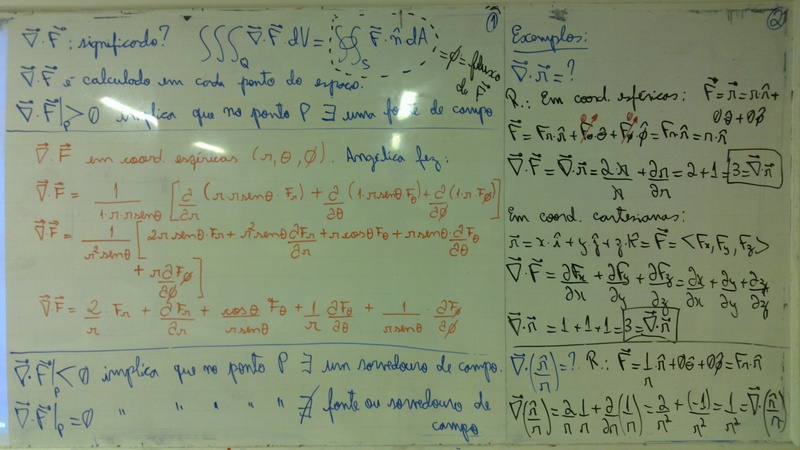 ①
∇⃗·F⃗ : significado? ∭_Q ∇⃗·F⃗ dV = ∯_S F⃗·n̂ dA = ϕ = fluxo de F⃗
∇⃗·F⃗ é calculado em cada ponto do espaço.
∇⃗·F⃗|_P > 0 implica que no ponto P ∃ uma fonte de campo
∇⃗·F⃗ em coord. esféricas (r, θ, ϕ). Angélica fez:
∇⃗·F⃗ = 1/(1·r·r senθ) [∂/∂r (r·r senθ·F_r) + ∂/∂θ (1·r senθ F_θ) + ∂/∂ϕ (1·r F_ϕ)]
∇⃗·F⃗ = 1/(r² senθ) [2r senθ·F_r + r² senθ ∂F_r/∂r + r cosθ F_θ + r senθ ∂F_θ/∂θ
+ r ∂F_ϕ/∂ϕ]
∇⃗·F⃗ = 2/r · F_r + ∂F_r/∂r + cosθ/(r senθ) F_θ + 1/r ∂F_θ/∂θ + 1/(r senθ) · ∂F_ϕ/∂ϕ
∇⃗·F⃗|_P < 0 implica que no ponto P ∃ um sorvedouro de campo.
∇⃗·F⃗|_P = 0 " " " " " ∄ fonte ou sorvedouro de
campo
②
Exemplos:
∇⃗·r⃗ = ?
R.: Em coord. esféricas: F⃗ = r⃗ = r·r̂ +
0θ̂ + 0ϕ̂
F⃗ = F_r·r̂ + F_θ·θ̂ + F_ϕ·ϕ̂ = F_r·r̂ = r·r̂
∇⃗·F⃗ = ∇⃗·r⃗ = 2r/r + ∂r/∂r = 2 + 1 = 3 = ∇⃗·r⃗
Em coord. cartesianas:
r⃗ = x·î + y ĵ + z·k̂ = F⃗ = <F_x, F_y, F_z>
∇⃗·F⃗ = ∂F_x/∂x + ∂F_y/∂y + ∂F_z/∂z = ∂x/∂x + ∂y/∂y + ∂z/∂z
∇⃗·r⃗ = 1 + 1 + 1 = 3 = ∇⃗·r⃗
∇⃗·(r̂/r) = ? R.: F⃗ = 1/r·r̂ + 0θ̂ + 0ϕ̂ = F_r·r̂
∇⃗·(r̂/r) = 2/r 1/r + ∂/∂r (1/r) = 2/r² + (-1)/r² = 1/r² = ∇⃗·(r̂/r)